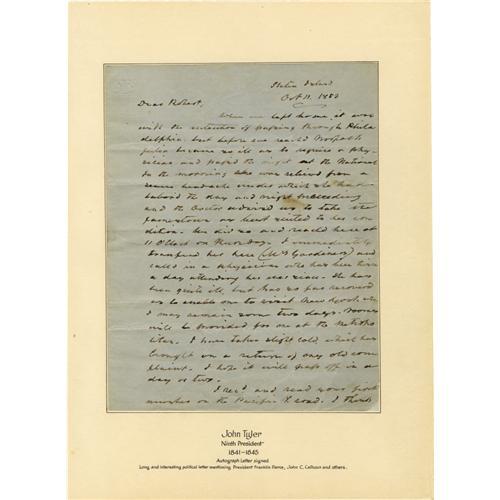 Staten Island
Oct 11. 1853
Dear Robert,
When we left home, it was
with the intention of passing through Phila
delphia. but before we reached Norfolk
Julia became so ill as to require a phy-
sician and passed the night at the National
In the morning she was relieved from a
severe headache under which she had
labored the day and night preceding
and the Doctor advised us to take the
Jamestown as best suited to her con
dition. We did so and reached here at
11 O'Clock on Thursday. I immediately
transfered her here (Mrs Gardiners) and
called in a physician who has been twice
a day attending her ever since. She has
been quite ill, but has so far recovered
as to enable me to visit New York where
I may remain some two days. Rooms
will be provided for me at the Metropo
litan. I have taken slight cold which has
brought on a return of my old com
plaint. I hope it will pass off in a
day or two.
I recd and read your first
number on the Pacific R. road. I think
John Tyler
Ninth President
1841-1845
Autograph Letter signed
Long and interesting political letter mentioning President Franklin Pierce, John C. Calhoun and others.